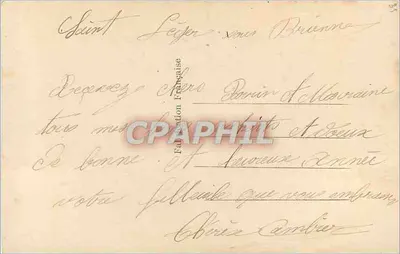 Saint Léger sous Brienne
Recevez chers Parrin et Marraine
tous mes souhaits et voeux
de bonne et heureux année
votre filleule que vous embrasse
Thérèse Cambier
Fabrication Française
CPAPHIL